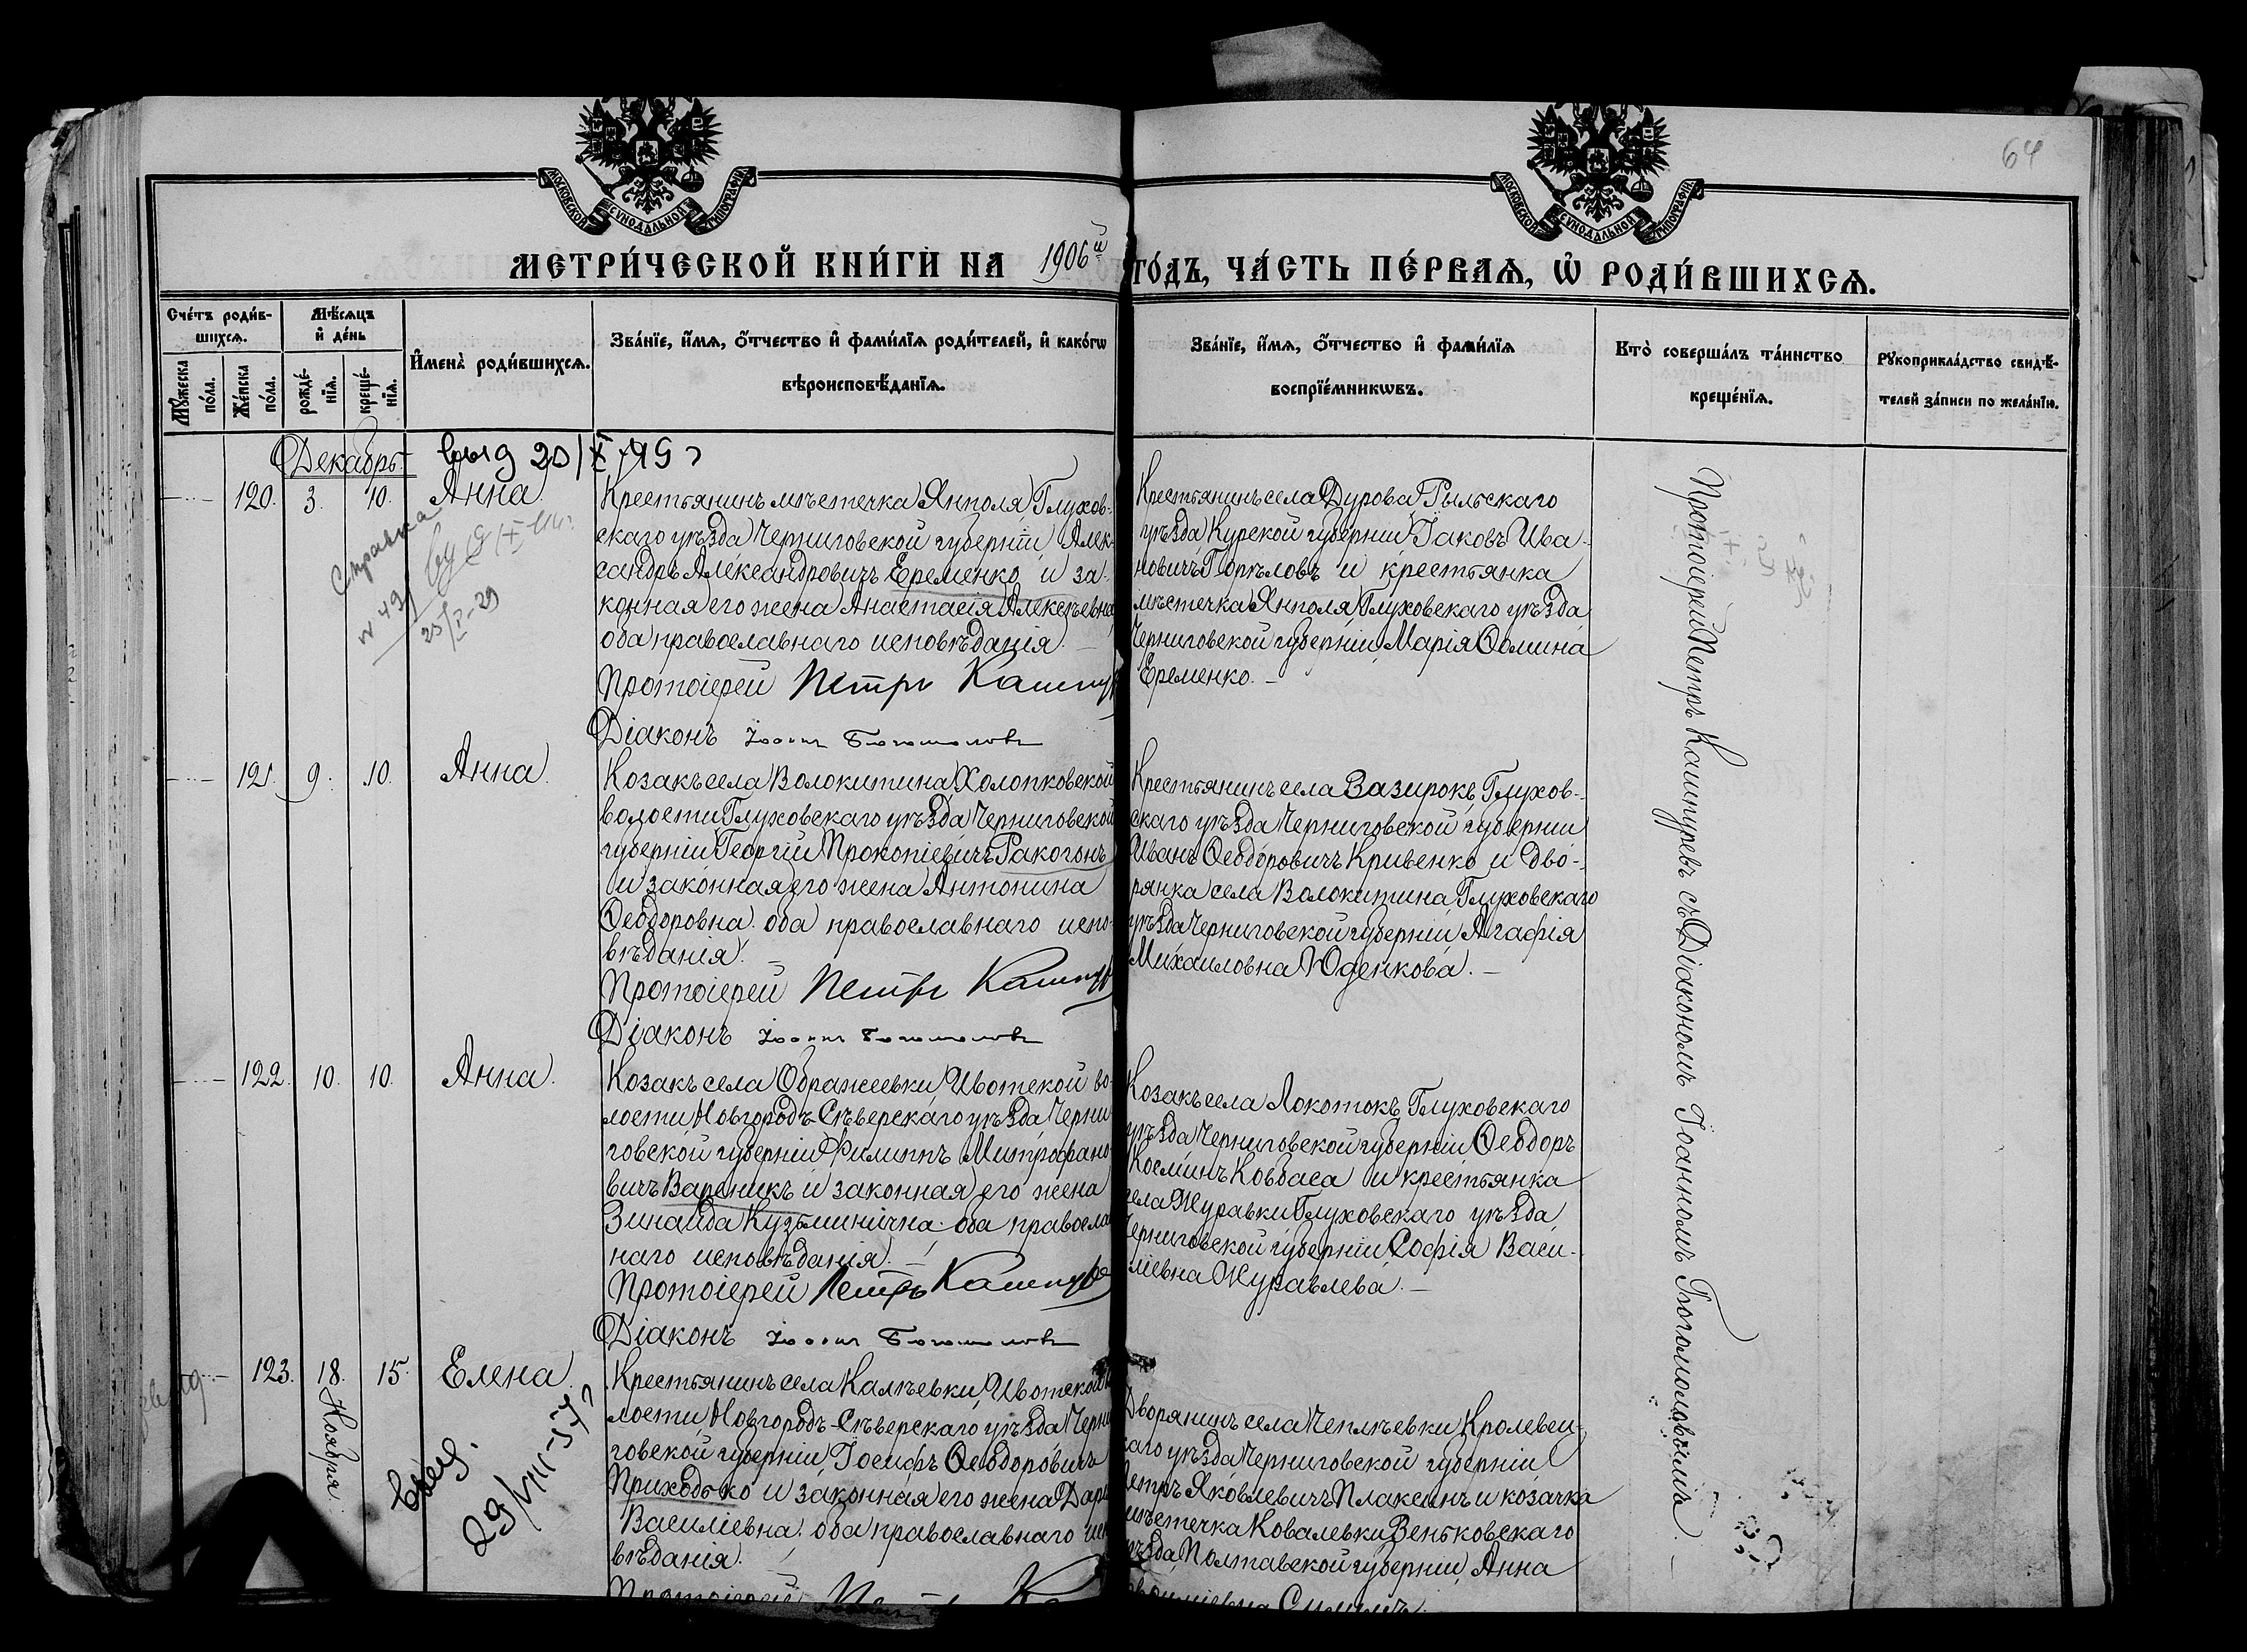 64
МОСКОВСКОЙ СѴНОДАЛЬНОЙ ТИПОГРАФІИ
МОСКОВСКОЙ СѴНОДАЛЬНОЙ ТИПОГРАФІИ
МЕТРИ́ЧЕСКОЙ КНИ́ГИ НА 1906й ГО́ДЪ, ЧА́СТЬ ПЕ́РВАѦ, Ѽ РОДИ́ВШИХСѦ.
Сче́тъ роди́в-
шихсѧ.
Мѣ́сѧцъ
и҆ де́нь
Мꙋ́жеска
по́ла.
Же́нска
по́ла.
рожде́-
нїѧ.
креще́-
нїѧ.
И҆мена̀ роди́вшихсѧ.
Зва́нїе, и҆́мѧ, ѻ҆́тчество и҆ фами́лїѧ роди́телей, и҆ како́гѡ
вѣроисповѣ́данїѧ.
Зва́нїе, и҆́мѧ, ѻ҆́тчество и҆ фами́лїѧ
воспрїе́мникѡвъ.
Кто̀ соверша́лъ та́инство
креще́нїѧ.
Рꙋкоприкла́дство свидѣ́-
телей за́писи по жела́нїю.
Декабрь
выд 20/X
120. 3. 10. Анна.
Справка
№ 49
25/I-29
Крестьянинъ мѣстечка Янполя, Глухов-
скаго уѣзда Черниговской губерніи Алек-
сандръ Александровичъ Еременко и за-
конная его жена Анастасія Алексѣевна,
оба православнаго исповѣданія.
Протоіерей Петръ Кашпур
Діаконъ Іоаннъ Богомоловъ
Крестьянинъ села Дурова, Рыльскаго
уѣзда Курской губерніи Іаковъ Ива-
новичъ Горѣловъ и крестьянка
мѣстечка Янполя Глуховскаго уѣзда
Черниговской губерніи, Марія Ѳомина
Еременко. –
Протоіерей Петръ Кашпуревъ съ Діакономъ Іоанномъ Богомоловымъ. –
121. 9. 10. Анна.
Козакъ села Волокитина, Холопковской
волости Глуховскаго уѣзда Черниговской
губерніи Георгій Прокопіевичъ Ракогонъ
и законная его жена Антонина
Ѳеодоровна. оба православнаго испо-
вѣданія. –
Протоіерей Петръ Кашпур
Діаконъ Іоаннъ Богомоловъ
Крестьянинъ села Зазирокъ, Глухов-
скаго уѣзда Черниговской губерніи
Иванъ Ѳеодоровичъ Кривенко и дво-
рянка села Волокитина, Глуховскаго
уѣзда Черниговской губерніи, Агафія
Михаиловна Юденкова. –
122. 10. 10. Анна.
Козакъ села Ображеевки, Ивотской во-
лости, Новгородъ-Сѣверскаго уѣзда Черни-
говской губерніи Филиппъ Митрофано-
вичъ Вареникъ и законная его жена
Зинаида Кузьминична. оба правосла
наго исповѣданія. –
Протоіерей Петръ Кашпуре
Діаконъ Іоаннъ Богомоловъ
Козакъ села Локотокъ, Глуховскаго
уѣзда Черниговской губерніи Ѳеодоръ
Косминъ Ковбаса и крестьянка
села Журавки Глуховскаго уѣзда
Черниговской губерніи, Софія Васи-
ліевна Журавлева. –
123. 18. Ноября. 15. Елена.
выд.
29/VIII-57 г
Крестьянинъ села Калѣевки, Ивотской
лости, Новгородъ-Сѣверскаго уѣзда Черни
говской губерніи Іосифъ Ѳеодоровичъ
Приходько и законная его жена Дарі
Василіевна. оба православнаго испо
вѣданія. –
Протоіерей Петръ Ка
Дворянинъ села Чеплѣевки, Кролевец-
каго уѣзда Черниговской губерніи
Петръ Яковлевичъ Плаксинъ и козачка
мѣстечка Ковалевки Зеньковскаго
уѣзда, Полтавской губерніи, Анна